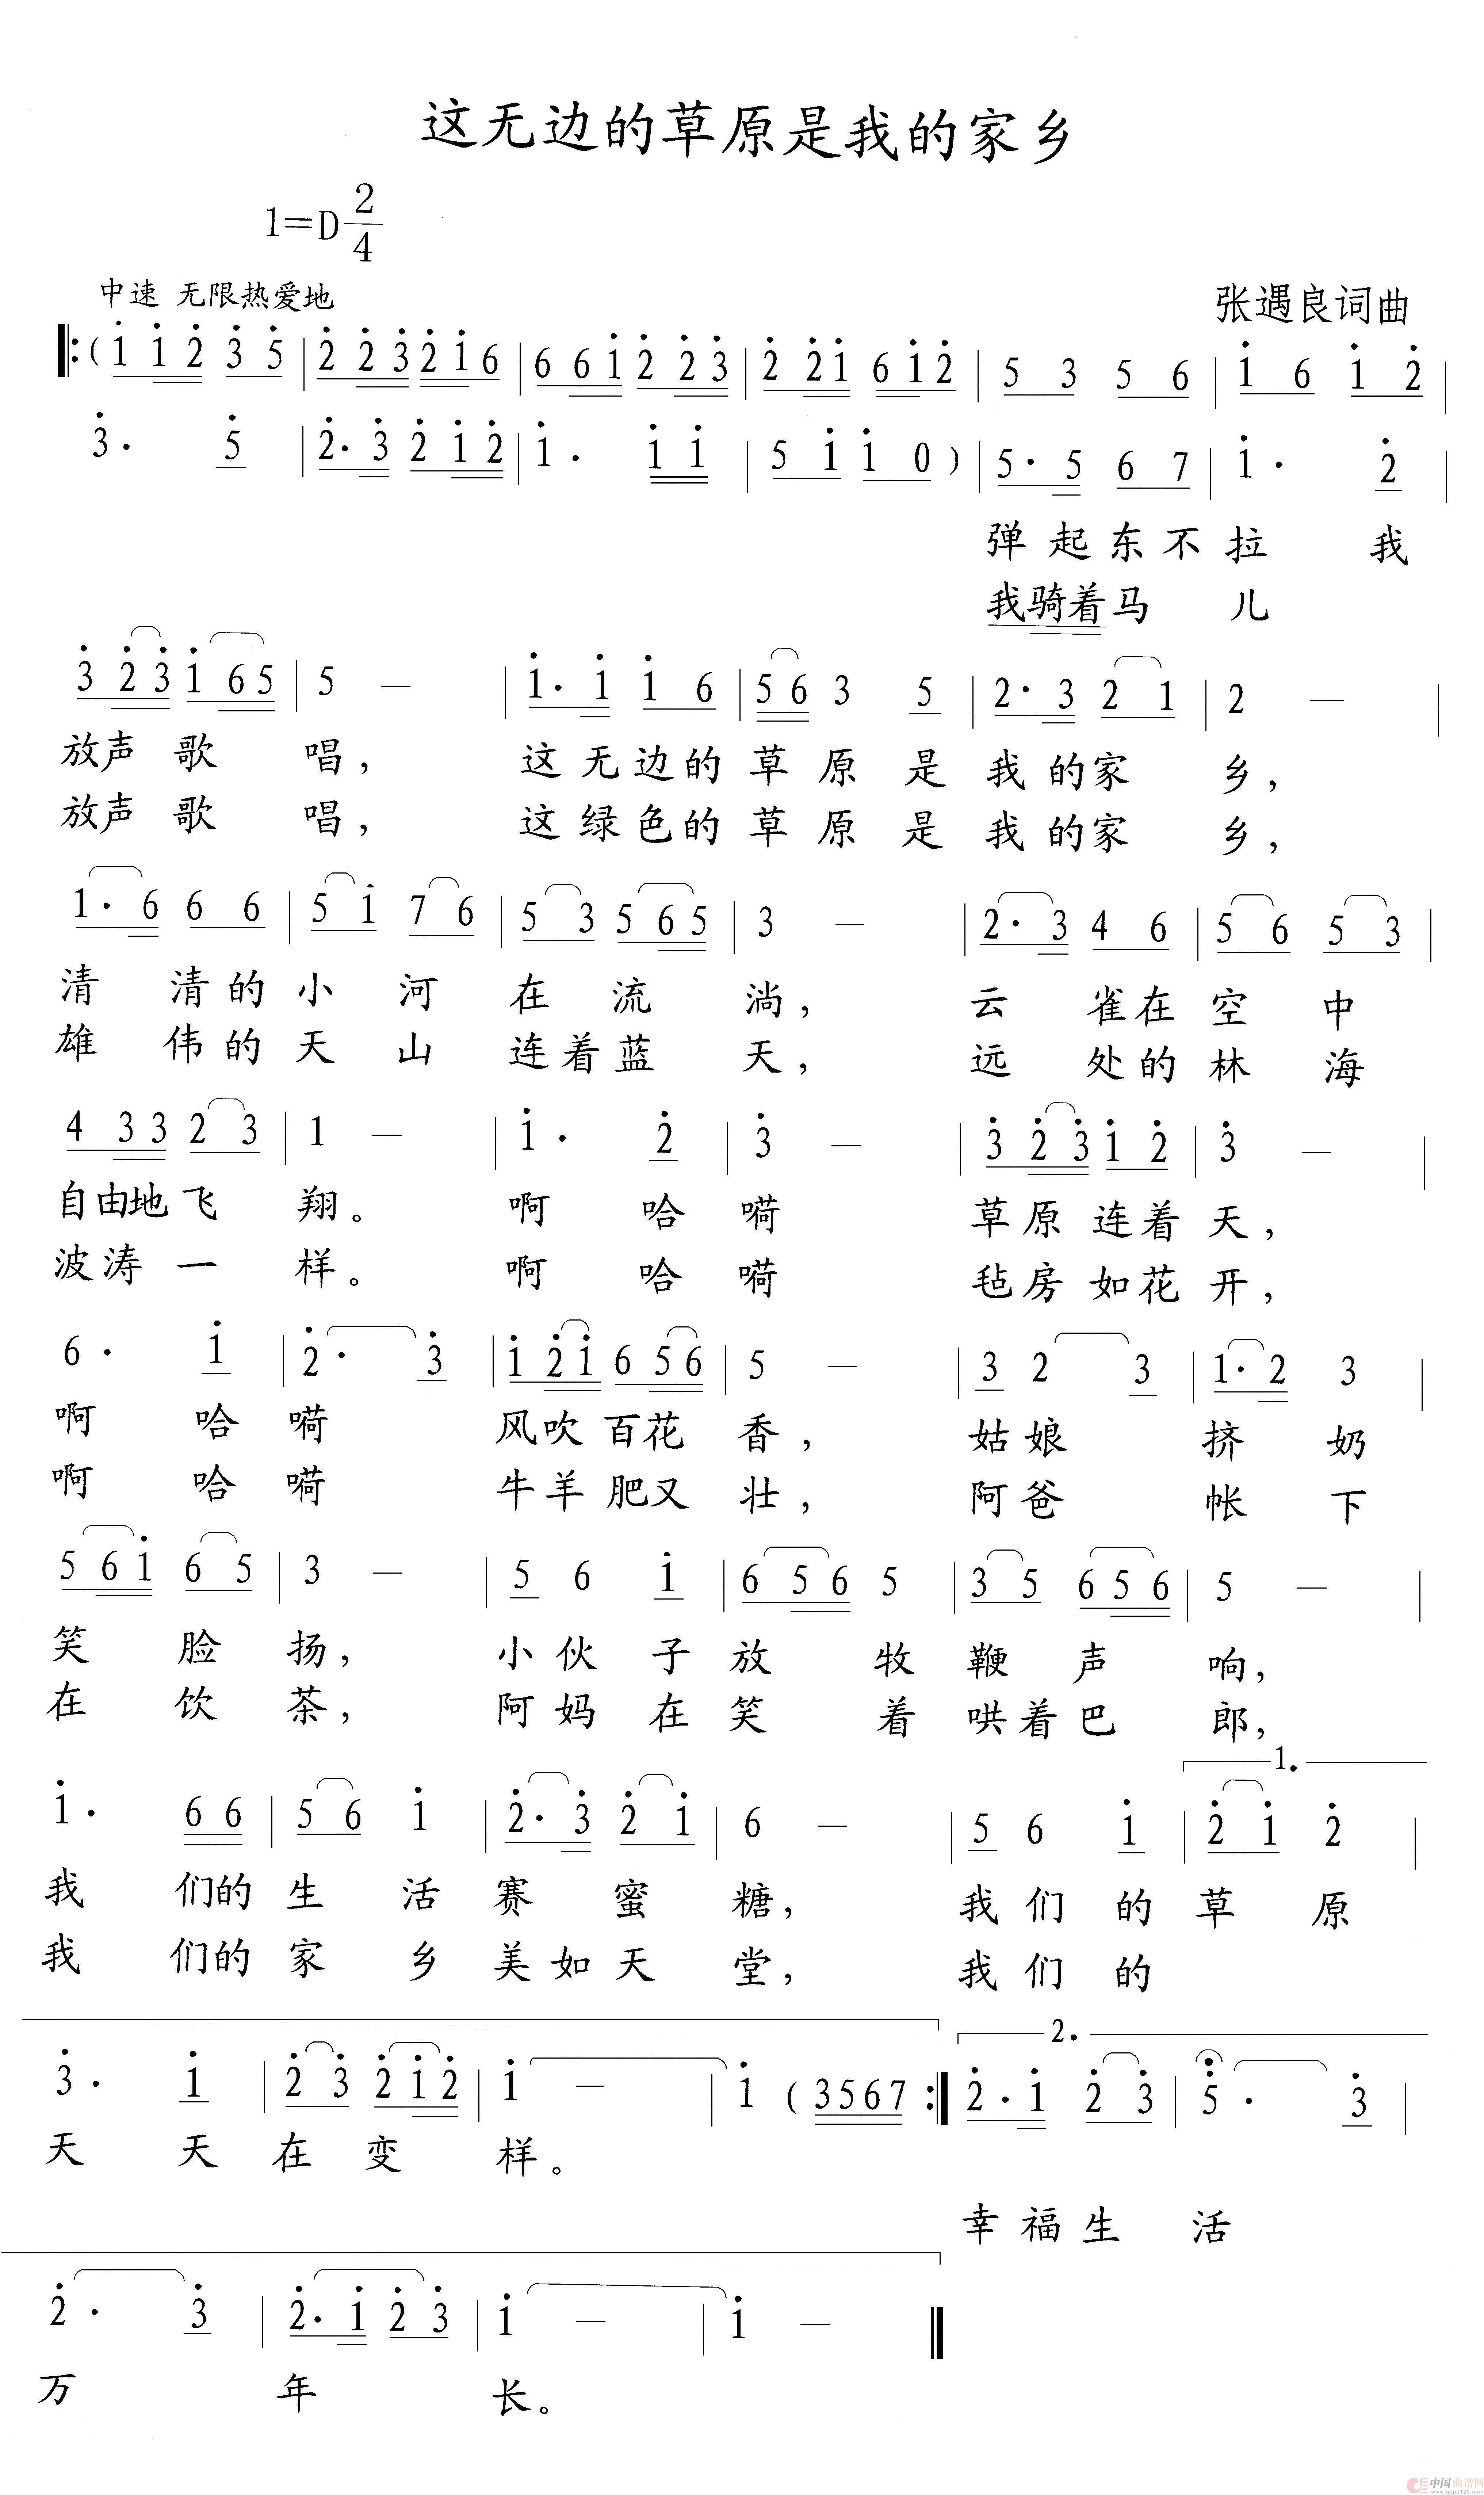 这无边的草原是我的家乡
1=D 2/4
中速 无限热爱地
张遇良词曲
‖:( i i 2̇ 3̇ 5̇ | 2̇ 2̇ 3̇ 2̇ i 6 | 6 6 i 2̇ 2̇ 3̇ | 2̇ 2̇ i 6 i 2̇ | 5 3 5 6 | i 6 i 2̇ |
3̇· 5̇ | 2̇· 3̇ 2̇ i 2̇ | i· i i | 5 i i 0 ) | 5· 5 6 7 | i· 2̇ |
弹起东不拉 我
我骑着马 儿
3̇ 2̇ 3̇ i 6 5 | 5 — | i· i i 6 | 5 6 3 5 | 2· 3 2 1 | 2 — |
放声 歌 唱, 这无边的草原是我的家 乡,
放声 歌 唱, 这绿色的草原是我的家 乡,
1· 6 6 6 | 5 i 7 6 | 5 3 5 6 5 | 3 — | 2· 3 4 6 | 5 6 5 3 |
清 清的小 河 在 流 淌, 云 雀在空 中
雄 伟的天 山 连着蓝 天, 远 处的林 海
4 3 3 2 3 | 1 — | i· 2̇ | 3̇ — | 3̇ 2̇ 3̇ i 2̇ | 3̇ — |
自由地飞 翔。 啊 哈 嗬 草原连着天,
波涛一 样。 啊 哈 嗬 毡房如花开,
6· i | 2̇· 3̇ | i 2̇ i 6 5 6 | 5 — | 3 2 3 | 1· 2 3 |
啊 哈 嗬 风吹百花 香, 姑娘 挤 奶
啊 哈 嗬 牛羊肥又 壮, 阿爸 帐 下
5 6 i 6 5 | 3 — | 5 6 i | 6 5 6 5 | 3 5 6 5 6 | 5 — |
笑 脸 扬, 小伙子放 牧 鞭 声 响,
在 饮 茶, 阿妈在笑 着 哄着巴 郎,
1.
i· 6 6 | 5 6 i | 2̇· 3̇ 2̇ i | 6 — | 5 6 i | 2̇ i 2̇ |
我 们的生 活 赛 蜜 糖, 我们的草 原
我 们的家 乡 美如天 堂, 我们的
2.
3̇· i | 2̇ 3̇ 2̇ i 2̇ | i — | i ( 3 5 6 7 :‖ 2̇· i 2̇ 3̇ | 5̇· 3̇ |
天 天 在 变 样。
幸福生 活
2̇· 3̇ | 2̇· i 2̇ 3̇ | i — | i — ‖
万 年 长。
中国曲谱网
www.qupu123.com